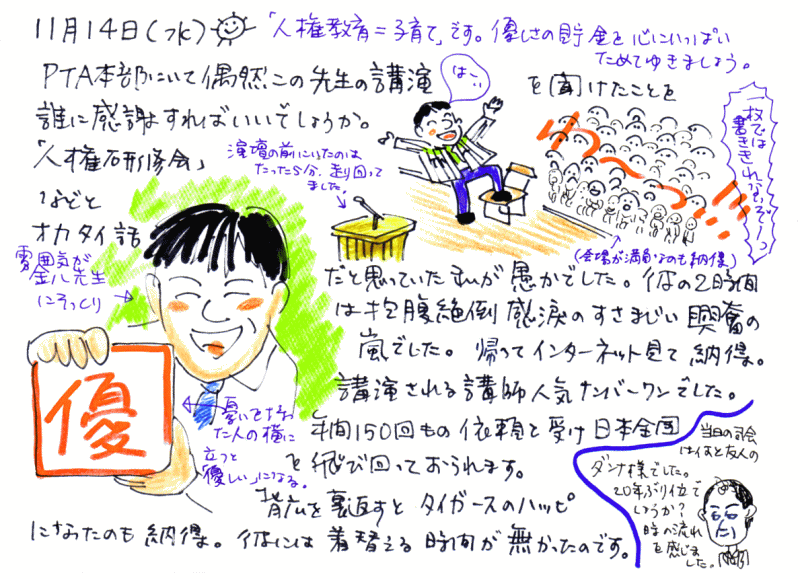 11月14日(水)
「人権教育=子育て」です。優しさの貯金を心にいっぱい
ためてゆきましょう。
PTA本部にいて偶然この先生の講演
を聞けたことを
誰に感謝すればいいでしょうか。
はい
「人権研修会」
などと
オカタイ話
演壇の前にいたのは
たった5分。走り回って
ました。
枚では
書ききれないぞーっ
(会場が満員なのも納得)
雰囲気が
金八先生
にそっくり
だと思っていた私が愚かでした。彼の2時間
は抱腹絶倒 感涙のすさまじい興奮の
嵐でした。帰ってインターネット見て納得。
講演される講師人気ナンバーワンでした。
年間150回もの依頼を受け日本全国
を飛び回っておられます。
背広を裏返すとタイガースのハッピ
になったのも納得。彼には着替える時間が無かったのです。
優
憂いを持っ
た人の横に
立つと
「優しい」になる。
当日の司会
はなんと友人の
ダンナ様でした。
20年ぶり位で
しょうか?
時の流れ
を感じま
した。